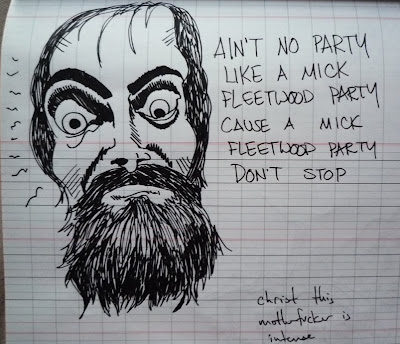 AIN'T NO PARTY
LIKE A MICK
FLEETWOOD PARTY
CAUSE A MICK
FLEETWOOD PARTY
DON'T STOP
christ this
motherfucker is
intense